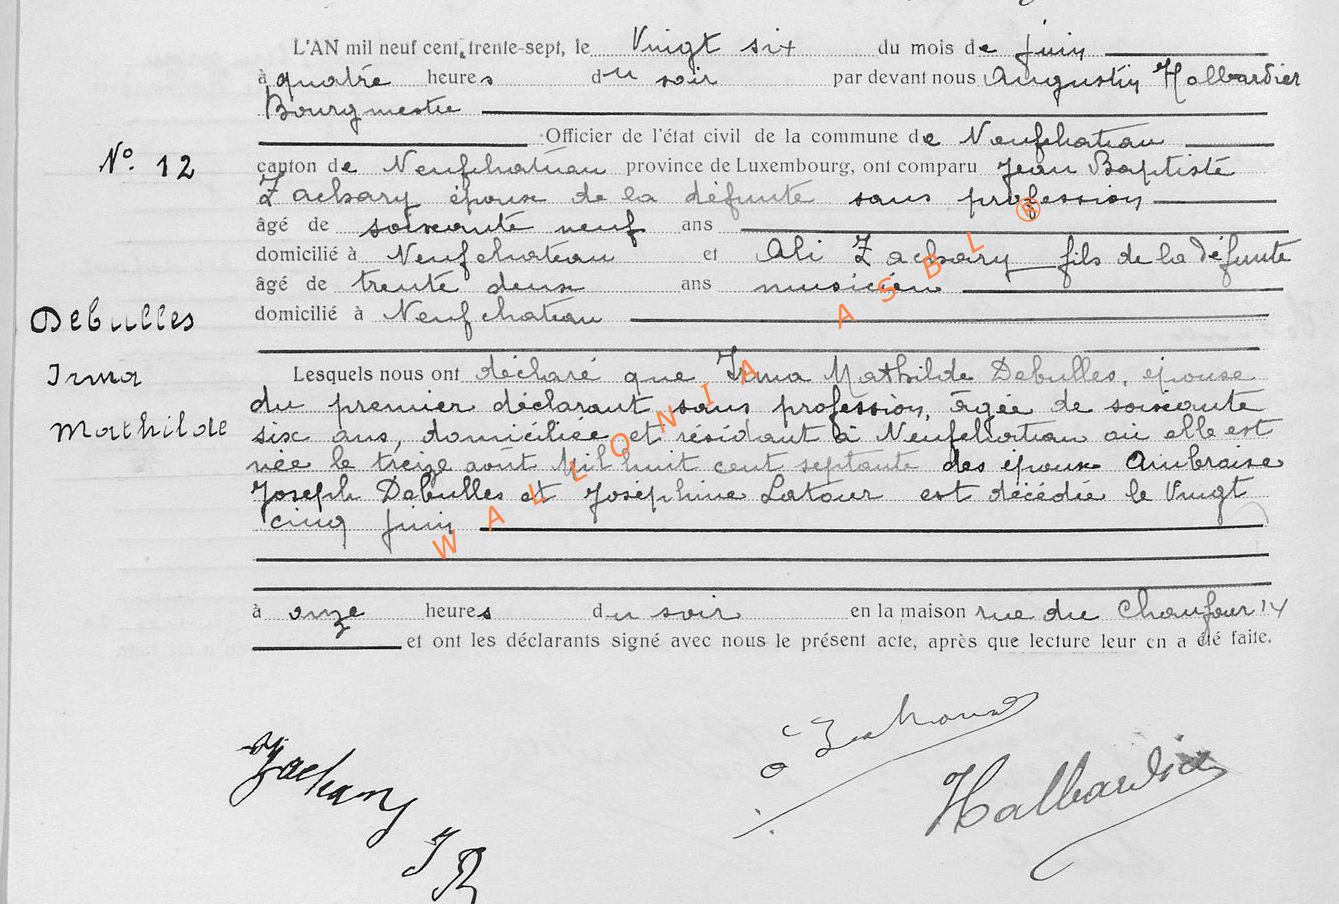 L'AN mil neuf cent trente-sept, le Vingt six du mois de juin
à quatre heures du soir par devant nous Augustin Halbardier
Bourgmestre
Officier de l'état civil de la commune de Neufchateau
N° 12
canton de Neufchateau province de Luxembourg, ont comparu Jean Baptiste
Zachary époux de la défunte sans profession
âgé de soixante neuf ans
domicilié à Neufchateau et Ali Zachary fils de la défunte
âgé de trente deux ans musicien
domicilié à Neufchateau
Debulles
Irma
Mathilde
Lesquels nous ont déclaré que Irma Mathilde Debulles, épouse
du premier déclarant sans profession, âgée de soixante
six ans, domiciliée et résidant à Neufchateau où elle est
née le treize août Mil huit cent septante des époux Ambroise
Joseph Debulles et Joséphine Latour est décédée le Vingt
cinq juin
à onze heures du soir en la maison rue du Chaufour 14
et ont les déclarants signé avec nous le présent acte, après que lecture leur en a été faite.
WALLONIA ASBL ®
Zachary
J B
Halbardier